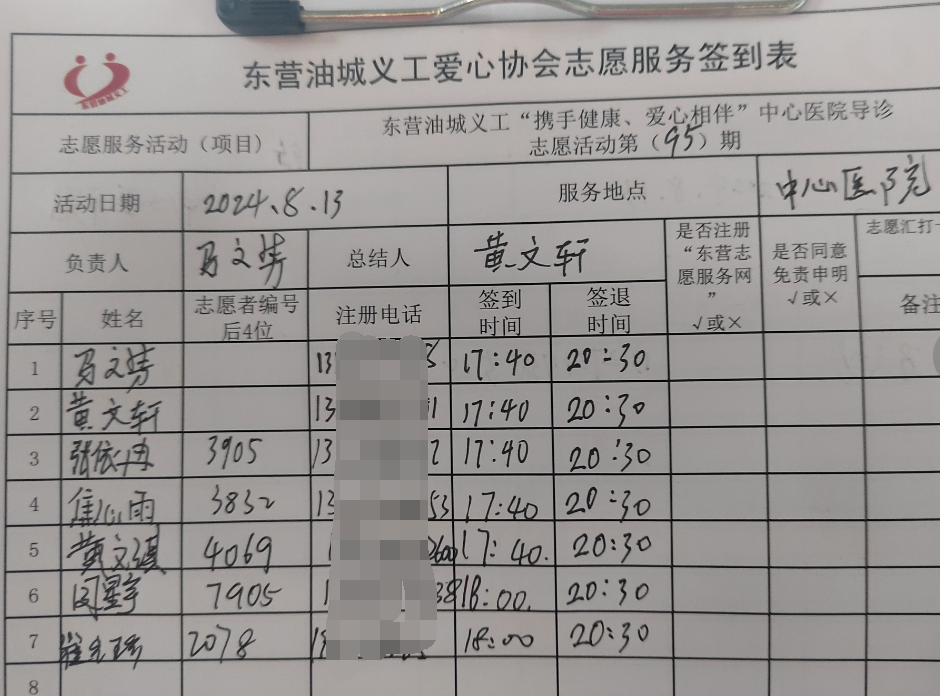 东营油城义工爱心协会志愿服务签到表
东营油城义工
志愿服务活动（项目） 东营油城义工“携手健康、爱心相伴”中心医院导诊
志愿活动第（95）期
活动日期 2024.8.13 服务地点 中心医院
负责人 马文 总结人 黄文轩 是否注册“东营志愿服务网” √或× 是否同意免责申明 √或× 志愿汇打
序号 姓名 志愿者编号后4位 注册电话 签到时间 签退时间 备注
1 马文 13 17:40 20:30
2 黄文轩 13 1 17:40 20:30
3 张依冉 3905 13 2 17:40 20:30
4 焦心雨 3832 13 53 17:40 20:30
5 黄文琪 4069 1 600 17:40. 20:30
6 闵 7905 1 38 18:00. 20:30
7 2078 18:00 20:30
8